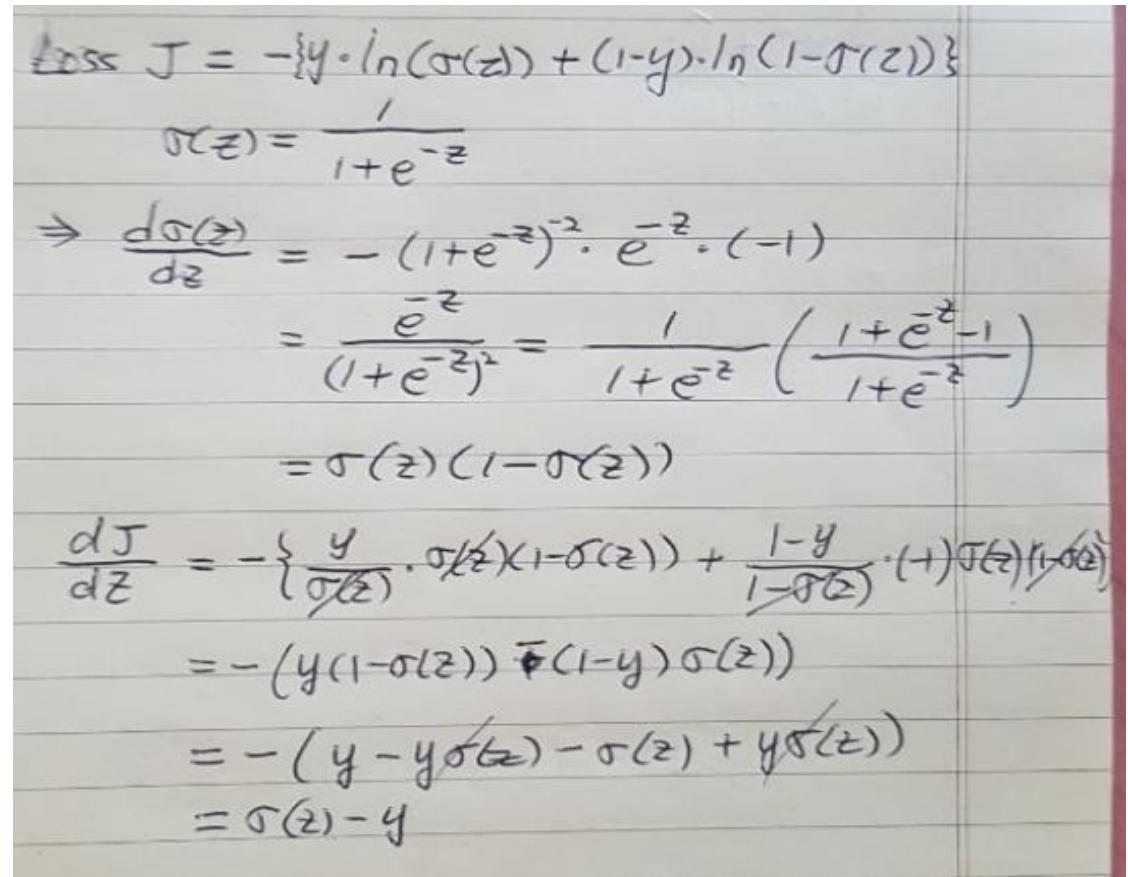 Loss J = -{y·ln(σ(z)) + (1-y)·ln(1-σ(z))}
σ(z) = 1/(1+e^{-z})
⇒ dσ(z)/dz = -(1+e^{-z})^{-2}·e^{-z}·(-1)
= e^{-z}/(1+e^{-z})² = 1/(1+e^{-z}) ((1+e^{-z}-1)/(1+e^{-z}))
= σ(z)(1-σ(z))
dJ/dz = -{y/σ(z)·σ(z)(1-σ(z)) + (1-y)/(1-σ(z))·(-1)σ(z)(1-σ(z))}
= -(y(1-σ(z)) - (1-y)σ(z))
= -(y - yσ(z) - σ(z) + yσ(z))
= σ(z) - y